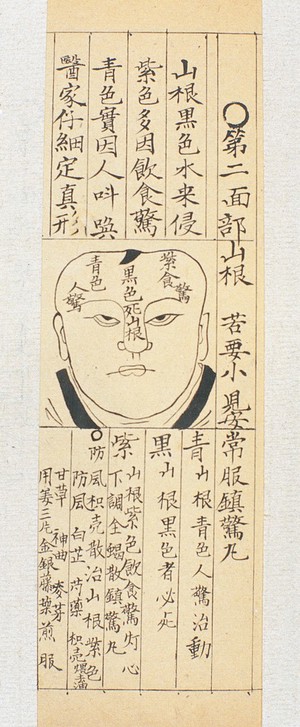 〇第二面部山根 若要小児安常服鎮驚丸
山根黒色水来侵
紫色多因飲食驚
青色實因人呌㘎
醫家仔細定真形
紫食驚
黒色死山根
青色人驚
青山根青色人驚治動
黒山根黒色者必死
紫山根紫色飲食驚灯心
下調全蝎散鎮驚丸
〇防風枳壳散治山根紫色
防風 白芷 芍藥 枳壳
甘草 神曲 麦芽
用姜三片金銀藤葉煎服